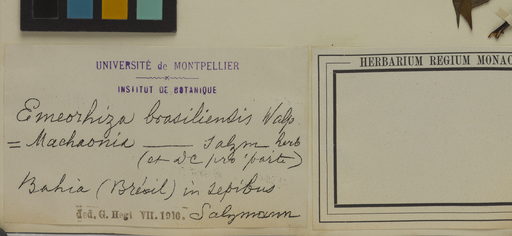 UNIVERSITÉ de MONTPELLIER
INSTITUT DE BOTANIQUE
Emeorhiza brasiliensis Walp.
= Machaonia — Salzm herb
(et DC pro parte)
Bahia (Brésil) in sepibus
ded. G. Hegi VII. 1910. Salzmann
HERBARIUM REGIUM MONAC